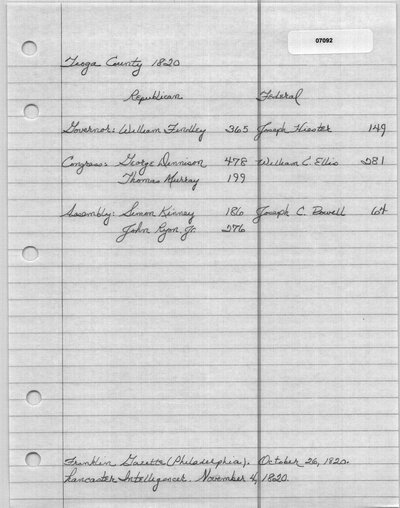 07092
Tioga County 1820
Republican Federal
Governor: William Findley 365 Joseph Hiester 149
Congress: George Dennison 478 William C Ellis 281
Thomas Murray 199
Assembly: Simon Kinney 186 Joseph C. Powell 64
John Ryon Jr. 276
Franklin Gazette (Philadelphia). October 26, 1820.
Lancaster Intelligencer. November 4, 1820.